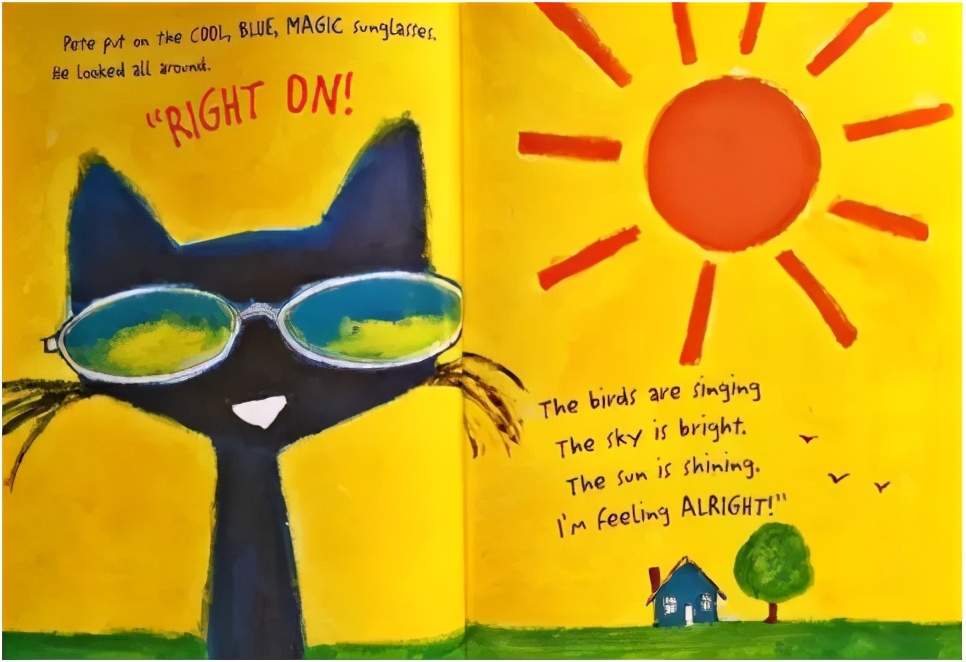 Pete put on the COOL, BLUE, MAGIC sunglasses.
He looked all around.
"RIGHT ON!
The birds are singing
The sky is bright.
The sun is shining.
I'm feeling ALRIGHT!"